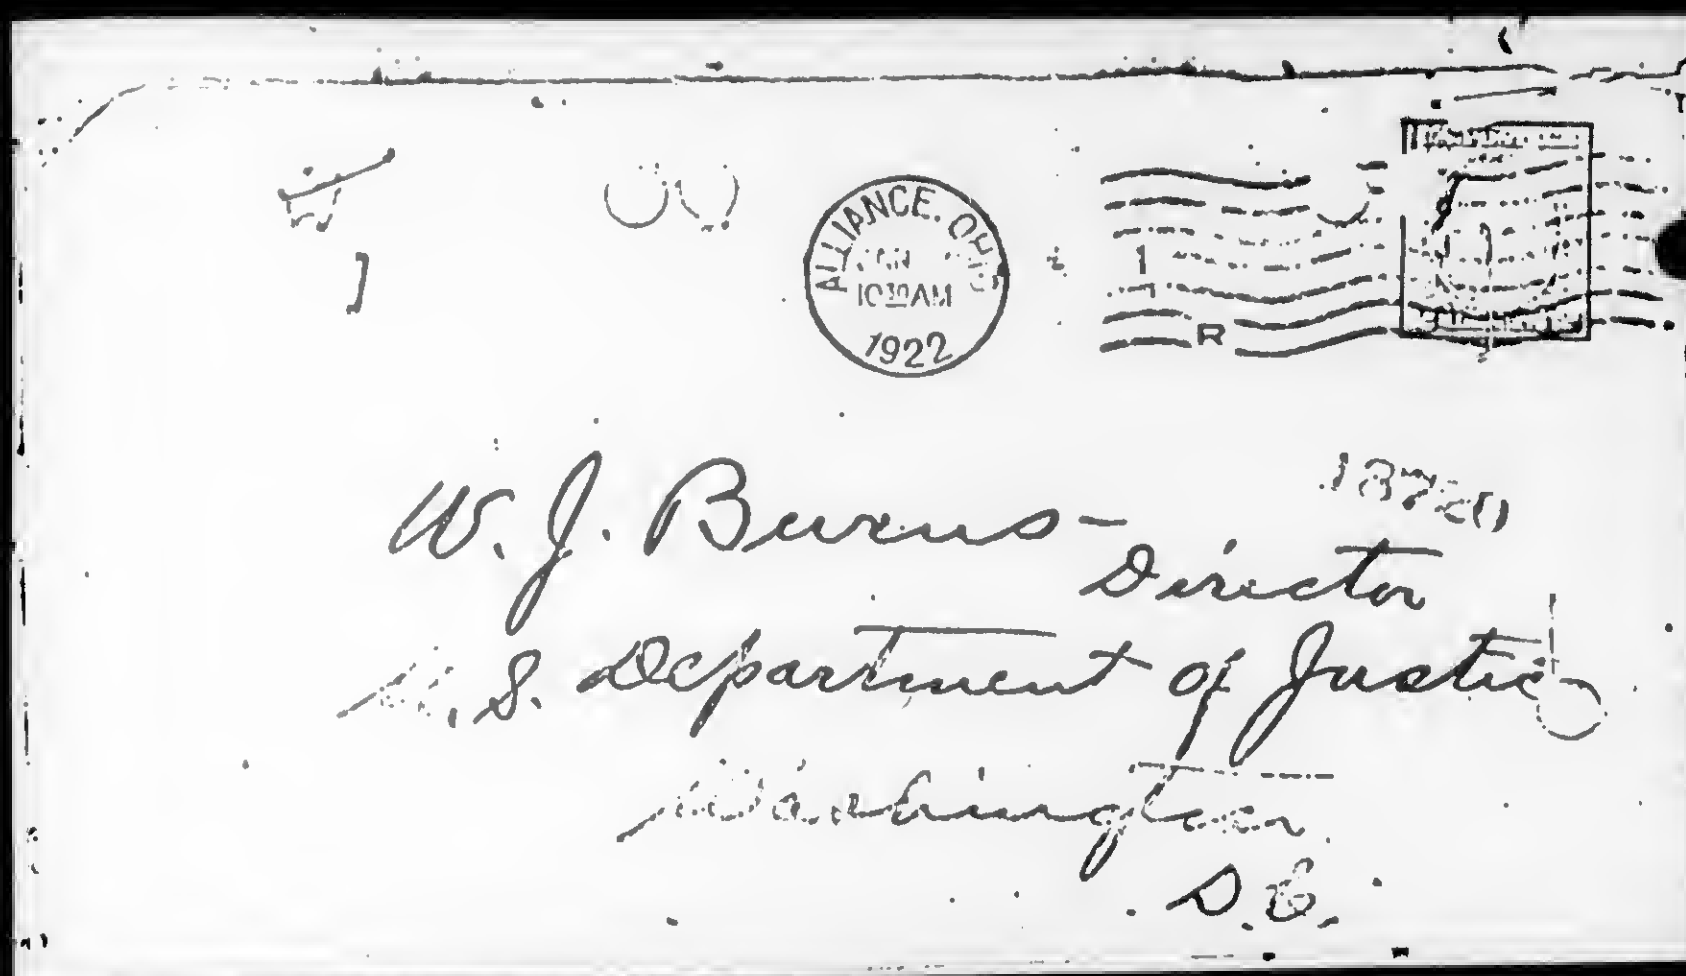 ALLIANCE, OHIO
JAN
10 30 AM
1922
R
W. J. Burns -
Director
U. S. Department of Justice
Washington
D. C.